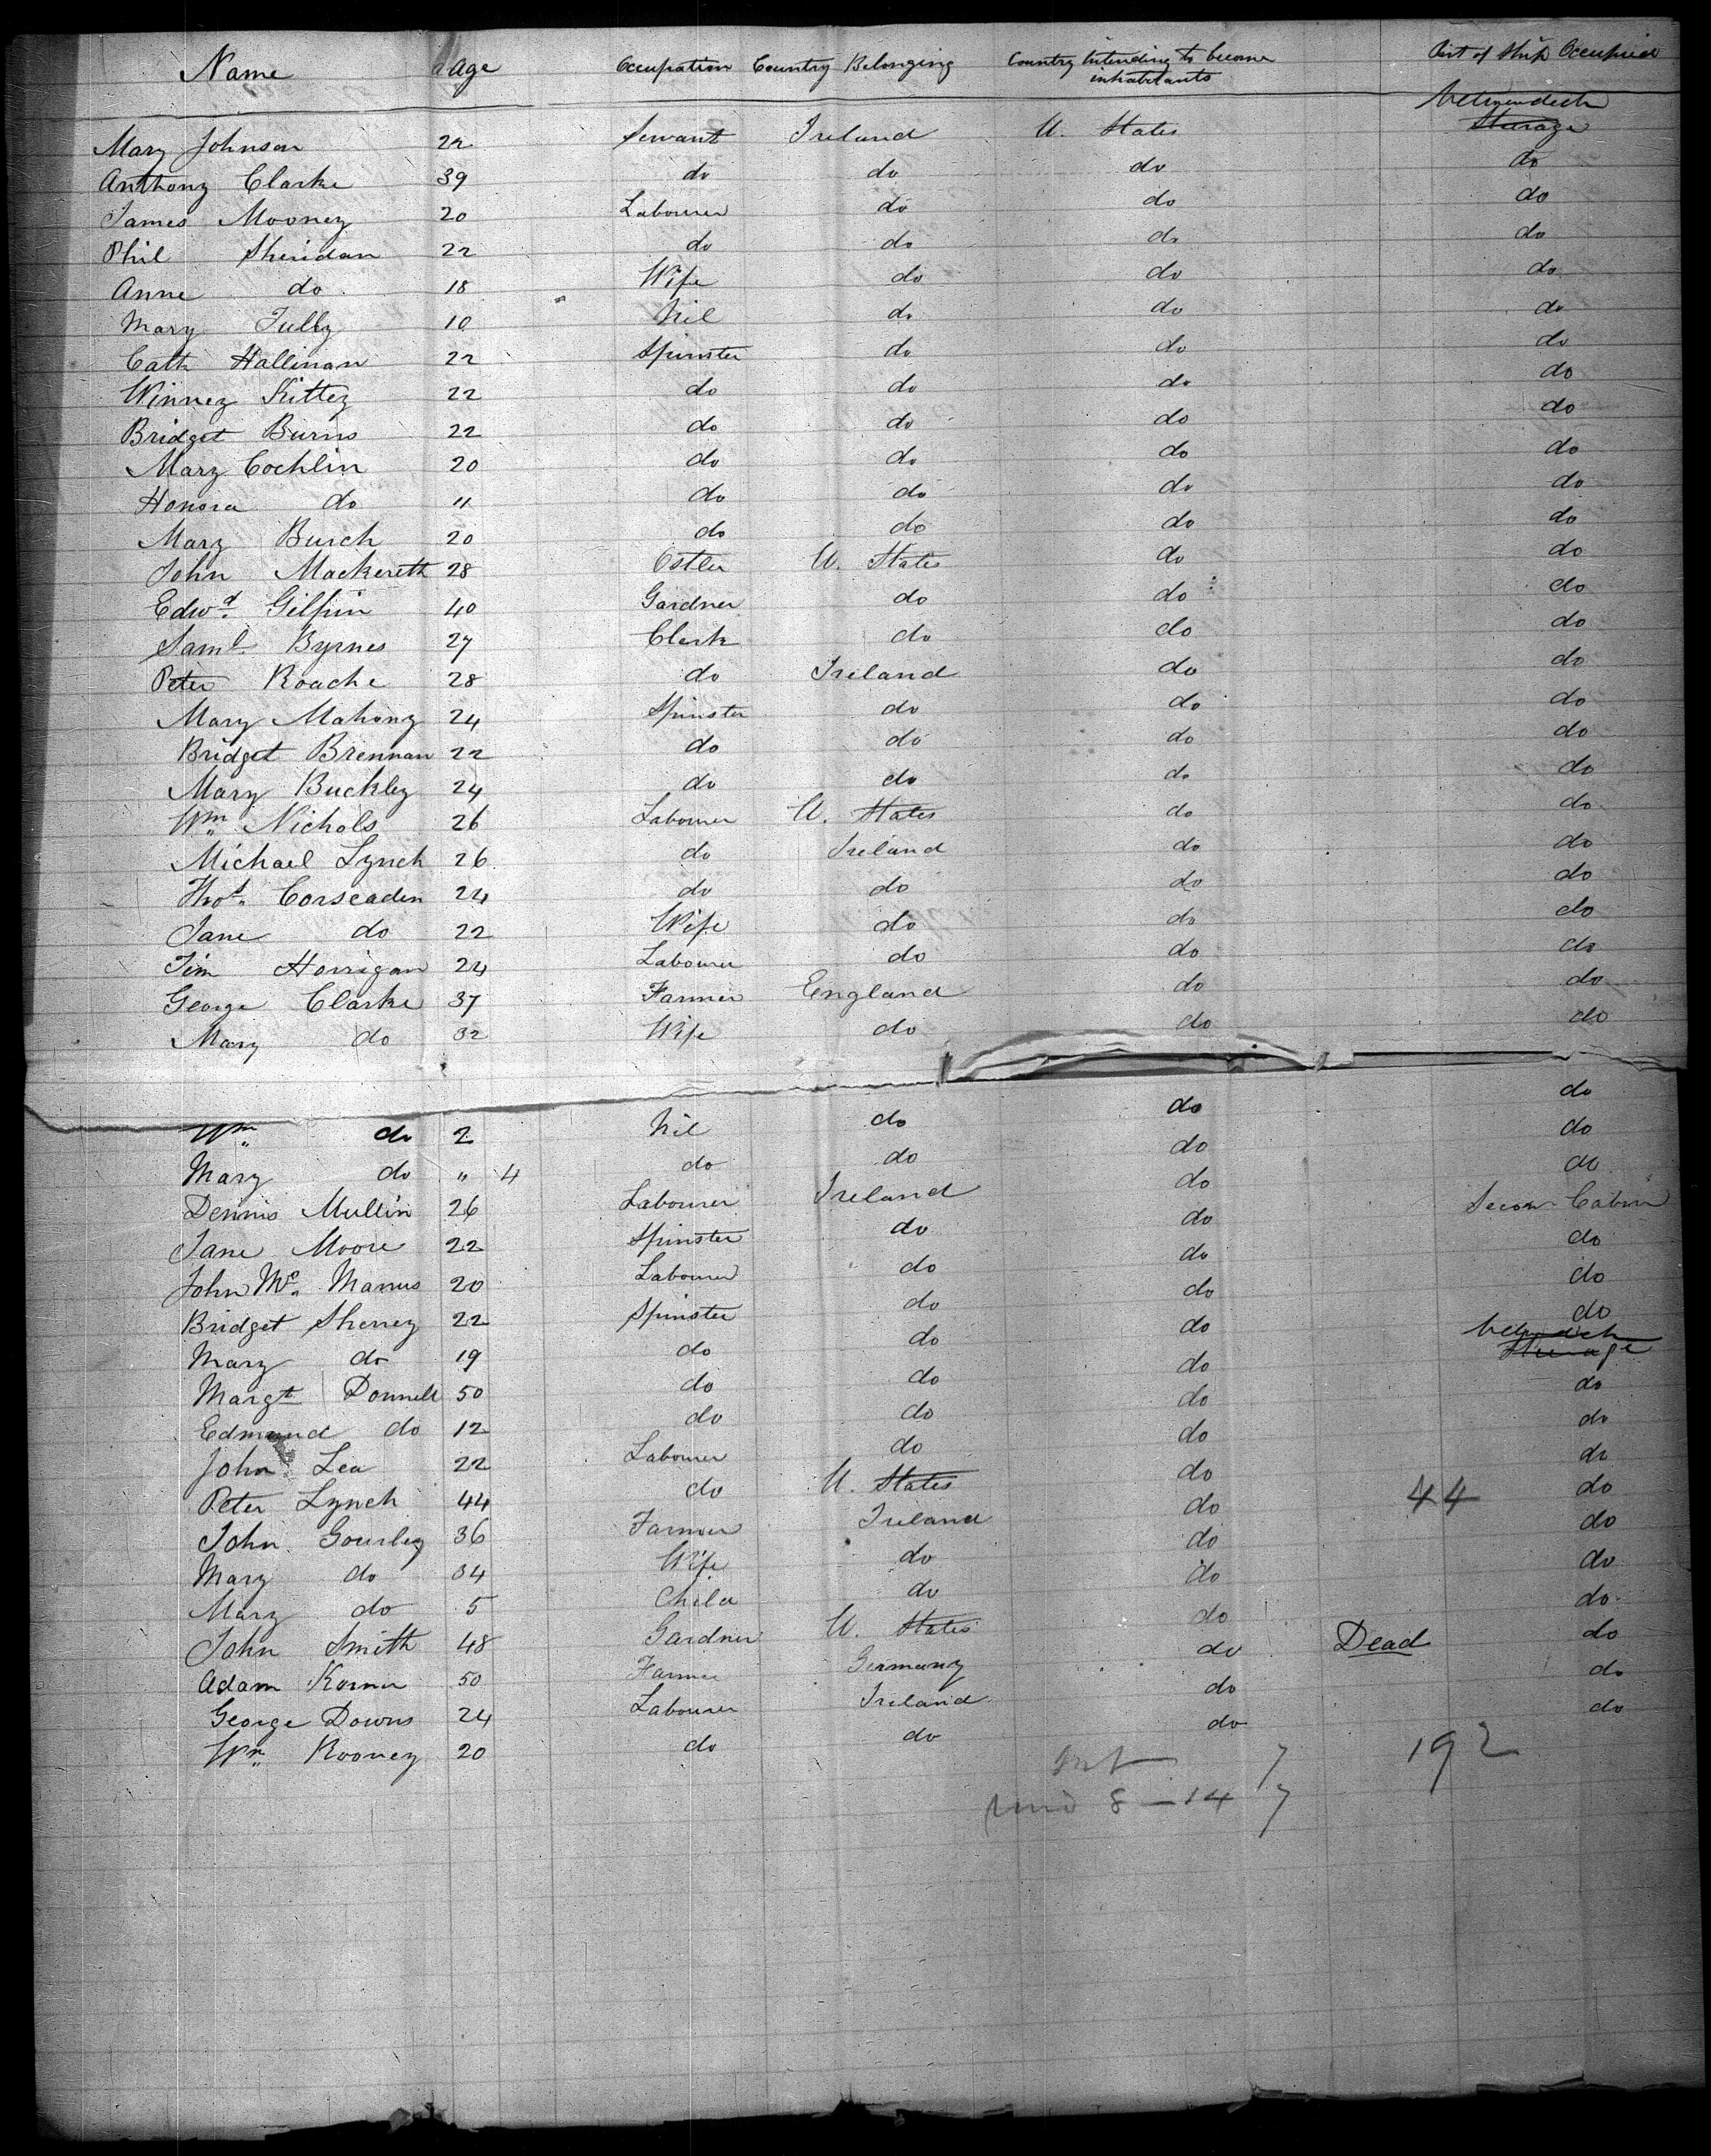 Name Age Occupation Country Belonging Country Intending to become inhabitants Part of Ship Occupied
Betweendeck
Mary Johnson 22 Servant Ireland U. States Sterage
Anthony Clarke 39 do do do do
James Mooney 20 Labourer do do do
Phil Sheridan 22 do do do do
Anne do 18 Wife do do do
Mary Tully 10 Nil do do do
Cath Hallinan 22 Spinster do do do
Winney Kittey 22 do do do do
Bridget Burns 22 do do do do
Mary Cochlin 20 do do do do
Honora do 11 do do do do
Mary Burch 20 do do do do
John Mackereth 28 Ostler U. States do do
Edwd. Gilpin 40 Gardner do do do
Saml. Byrnes 27 Clerk do do do
Peter Roache 28 do Ireland do do
Mary Mahony 24 Spinster do do do
Bridget Brennan 22 do do do do
Mary Buckley 24 do do do do
Wm. Nichols 26 Labourer U. States do do
Michael Lynch 26 do Ireland do do
Thos. Corscaden 24 do do do do
Jane do 22 Wife do do do
Tim Horrigan 24 Labourer do do do
George Clarke 37 Farmer England do do
Mary do 32 Wife do do do
Wm. do 2 Nil do do do
Mary do " 4 do do do do
Dennis Mullin 26 Labourer Ireland do do
Jane Moore 22 Spinster do do Secon Cabin
John Mc. Manus 20 Labourer do do do
Bridget Sherry 22 Spinster do do do
Mary do 19 do do do do
Margt Donnell 50 do do do Sterage
Edmund do 12 do do do do
John Lea 22 Labourer do do do
Peter Lynch 44 do U. States do do
John Gourley 36 Farmer Ireland do 44 do
Mary do 34 Wife do do do
Mary do 5 Child do do do
John Smith 48 Gardner U. States do do
Adam Korner 50 Farmer Germany do Dead do
George Downs 24 Labourer Ireland do do
Wm. Rooney 20 do do do do
7 192
8 - 14 7